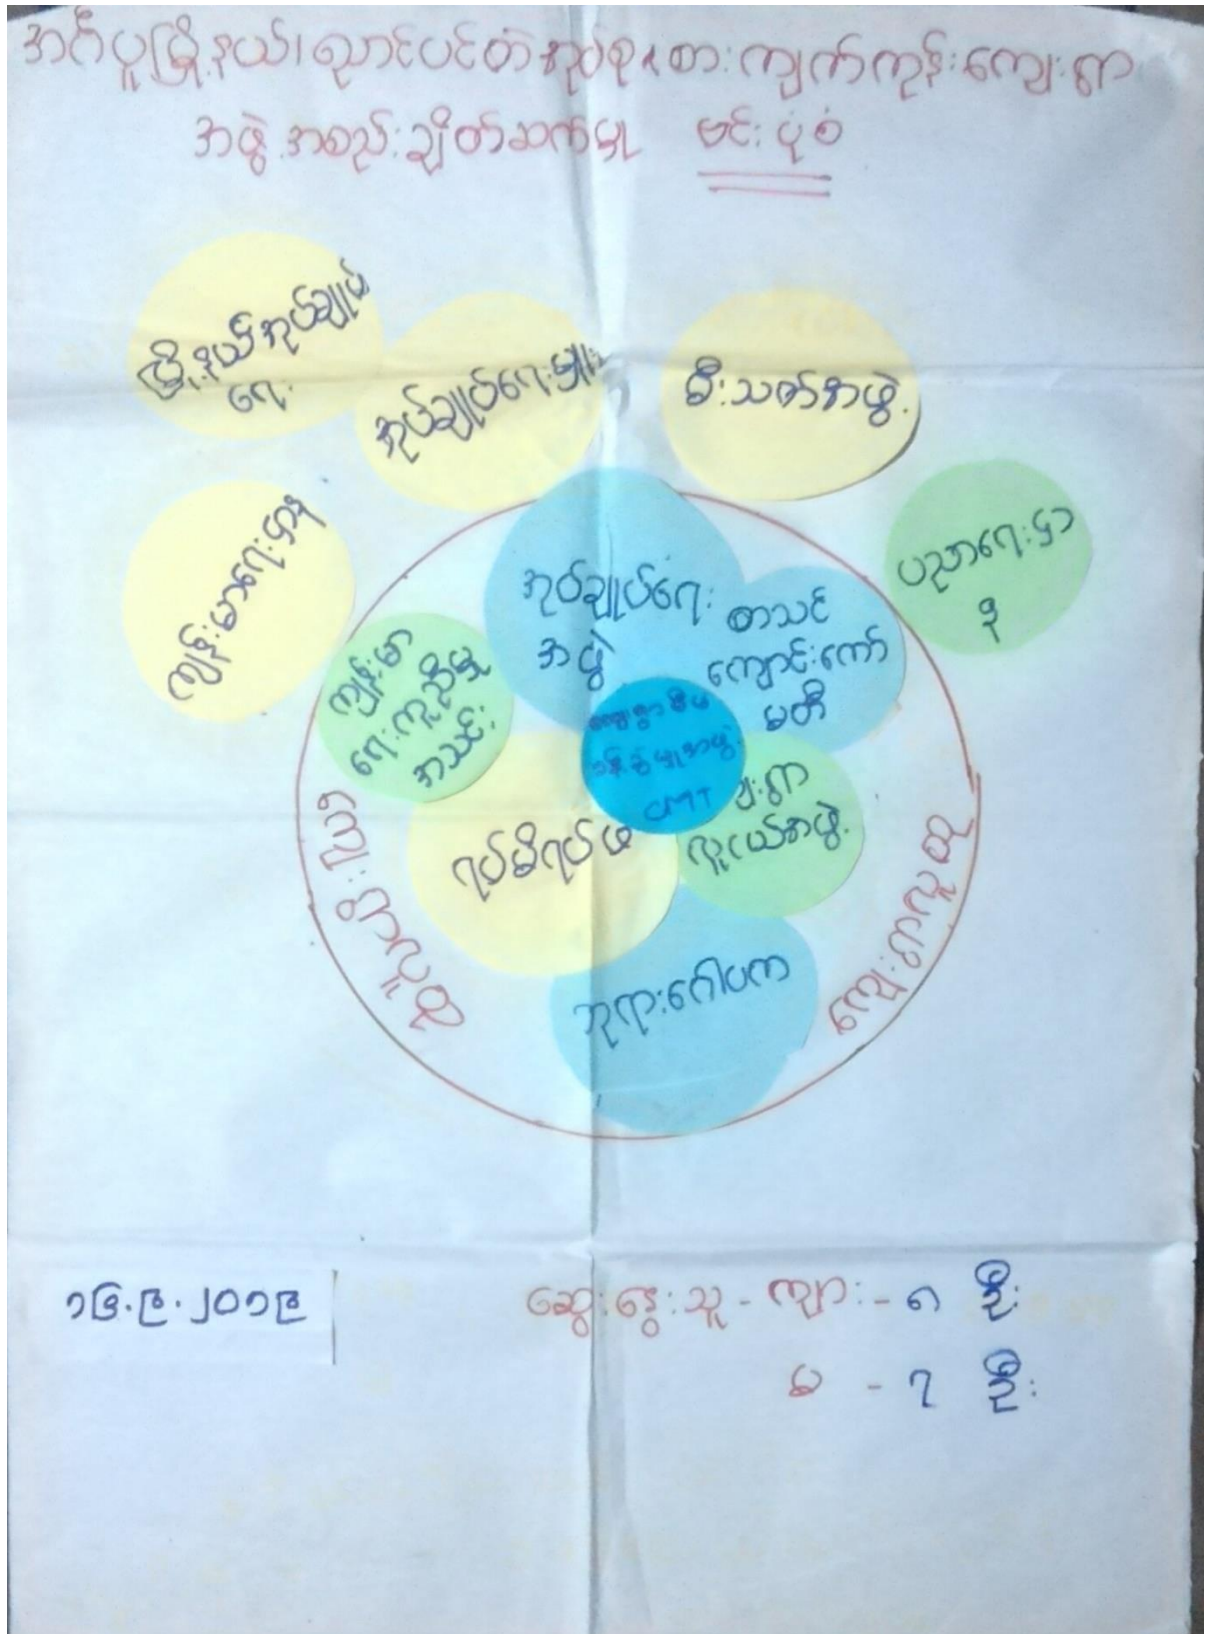 အင်္ဂပူမြို့နယ်၊ ညောင်ပင်တဲအုပ်စု၊ စားကျက်ကုန်းကျေးရွာ
အဖွဲ့အစည်းချိတ်ဆက်မှု ဗင်းပုံစံ
မြို့နယ်အုပ်ချုပ်
ရေး
အုပ်ချုပ်ရေးမှူး
မီးသတ်အဖွဲ့
ကျန်းမာရေးဌာန
ပညာရေးဌာ
န
အုပ်ချုပ်ရေး
အဖွဲ့
စာသင်
ကျောင်းကော်
မတီ
ကျန်းမာ
ရေးကူညီမှု
အသင်း
ကျေးရွာစီမံ
ခန့်ခွဲမှုအဖွဲ့
CMT
ကျေးရွာ
လူငယ်အဖွဲ့
ရပ်မိရပ်ဖ
ဘုရားဂေါပက
ကျေးရွာလူထု
ဆွေးနွေးသူ - ကျား - ၈ ဦး
မ - ၇ ဦး